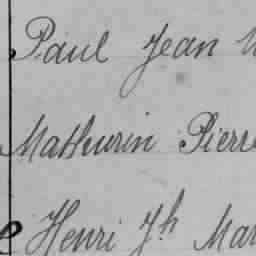 Paul Jean
Mathurin Pierre
Henri Jh Mar